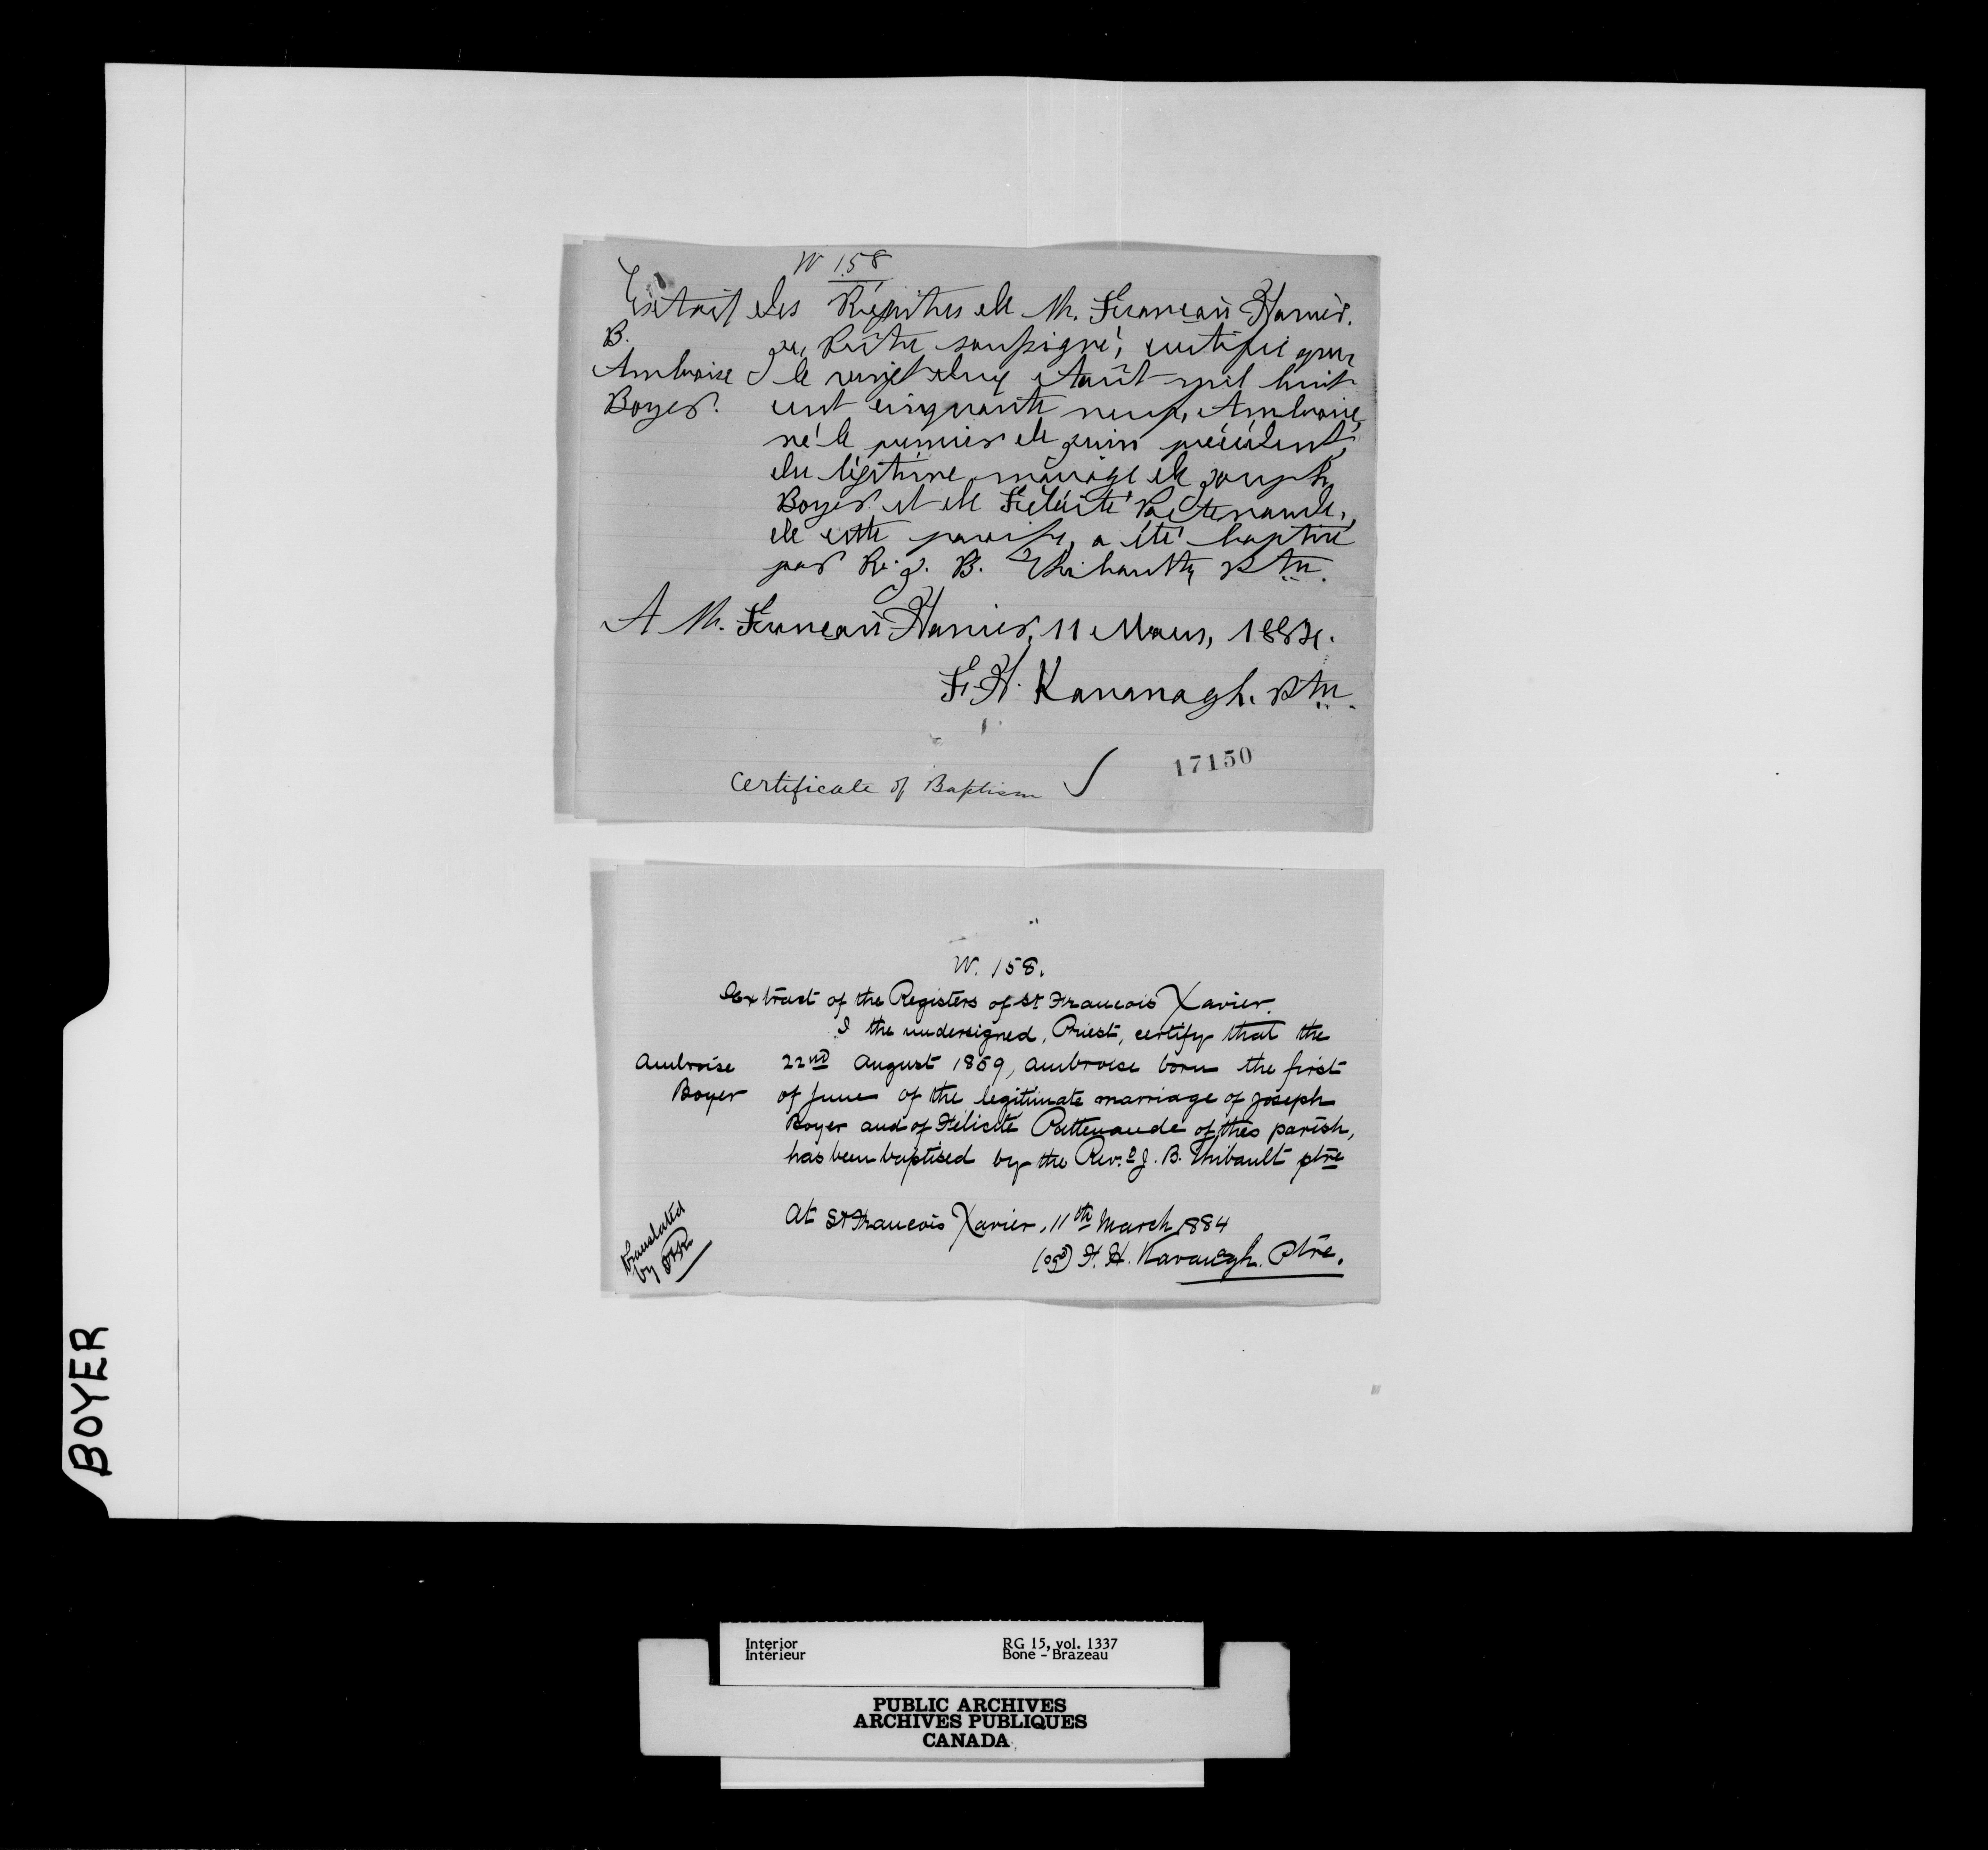 W 158
Extrait des Régistres de St. François Xavier.
B.
Ambroise
Boyer.
Je, Prêtre soussigné, certifie que
le vingt deux Août mil huit
cent cinquante neuf, Ambroise,
né le premier de Juin précédent,
du légitime mariage de Joseph
Boyer et de Félicité Pattenaude,
de cette paroisse, a été baptisé
par R. J. B. Thibault, Ptre.
A St. François Xavier, 11 Mars, 1884.
F. H. Kavanagh. Ptre.
Certificate of Baptism
17150
W. 158.
Extract of the Registers of St Francois Xavier.
I the undersigned, Priest, certify that the
Ambroise
Boyer
22nd August 1859, Ambroise born the first
of June of the legitimate marriage of Joseph
Boyer and of Félicité Pattenaude of this parish,
has been baptised by the Revd J. B. Thibault ptre
At St Francois Xavier, 11th March 1884
(sgd) F. H. Kavanagh. Ptre.
translated
by
BOYER
Interior
Intérieur
RG 15, vol. 1337
Bone - Brazeau
PUBLIC ARCHIVES
ARCHIVES PUBLIQUES
CANADA